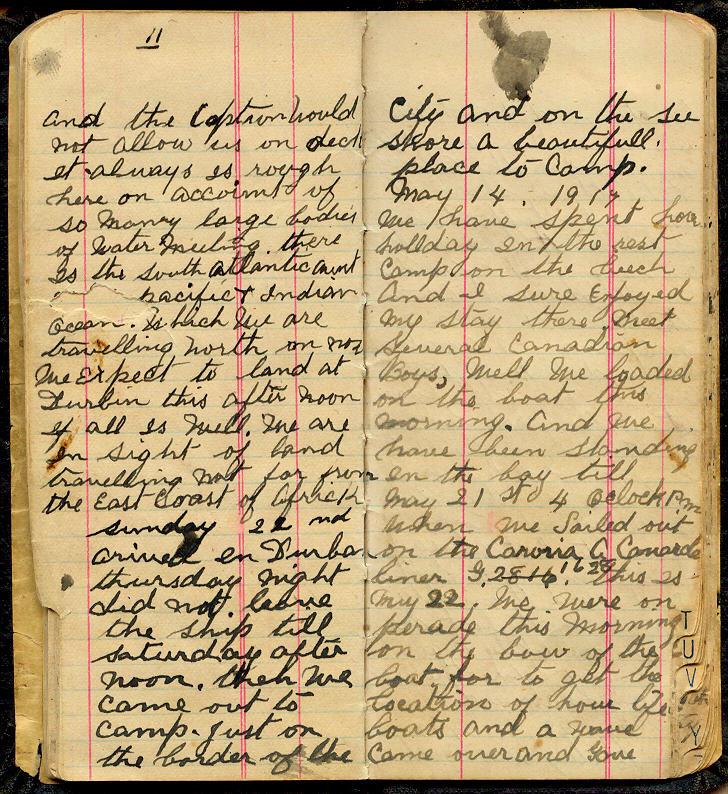 11
and the Caption would
not allow us on deck
it always is rough
here on account of
so maney large bodies
of water meeting. there
is the south atlantic
pacific & Indian
ocean. Which We are
travelling north on now
We Expect to land at
Durbin this after noon
if all is Well. We are
in sight of land
travelling not far from
the East Coast of Africa
sunday 22 nd
arived en Durban
thursday night
did not leave
the ship till
saturday after
noon. then We
came out to
camp. just on
the border of the
City and on the see
shore a beautifull.
place to Camp.
May 14. 1917
We have spent
holiday in the rest
Camp on the beech
And I sure Enjoyed
my stay there. meet
several Canadian
Boys, Well We loaded
on the boat this
morning. And We
have been standing
en the bay till
May 21 st 4 oclock Pm
When We Sailed out
on the Caronia A Canarde
liner This is
May 22. We were on
perade this Morning
on the bow of the
boat for to get the
location of
boats and a wave
Came over and
T
U
V
Y